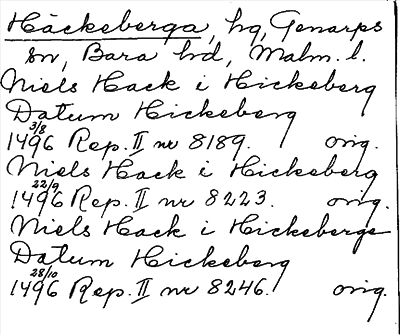 Häckeberga, hg, Genarps
sn, Bara hd, Malm. l.
Niels Hack i Hickeberg
Datum Hickeberg
3/8
1496 Rep. II nr 8189. orig.
Niels Hack i Hickeberg
22/9
1496 Rep. II nr 8223. orig.
Niels Hack i Hickeberge
Datum Hickeberg
28/10
1496 Rep. II nr 8246. orig.